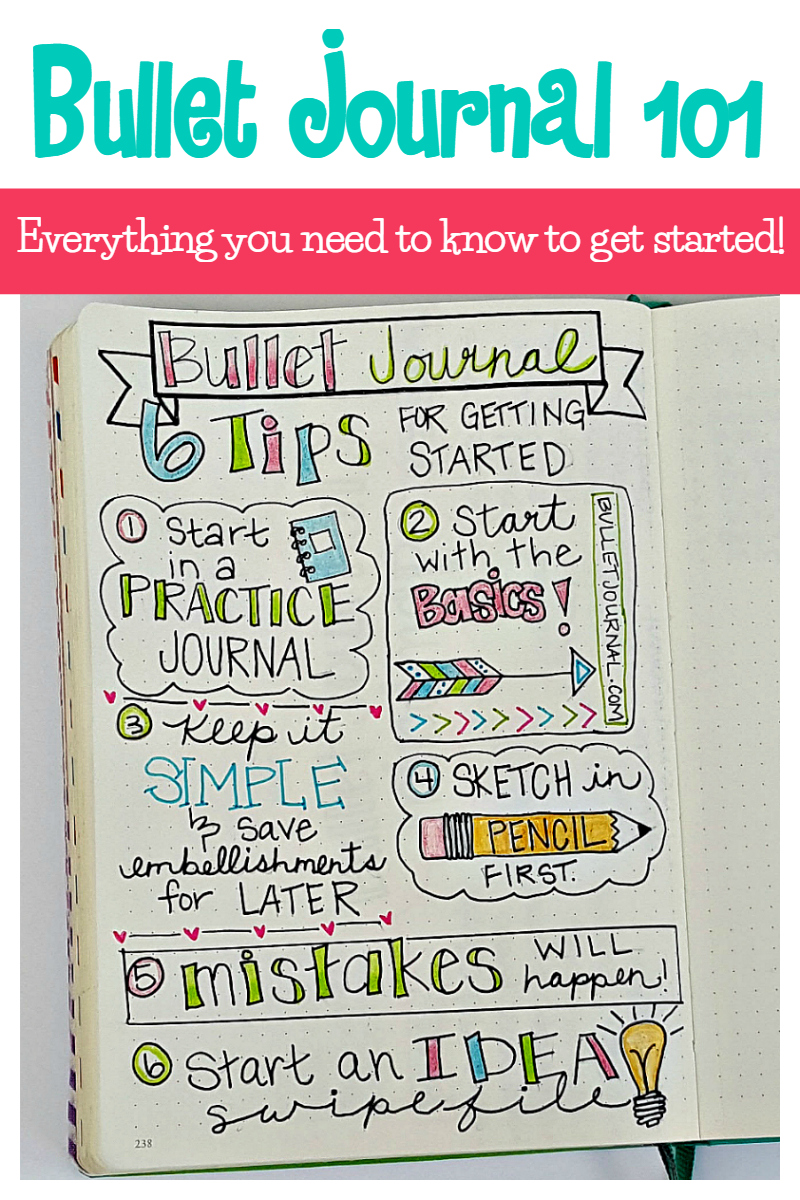 Bullet Journal 101
Everything you need to know to get started!
Bullet Journal
6 Tips FOR GETTING
STARTED
1 Start
in a
PRACTICE
JOURNAL
2 Start
with the
Basics!
BULLETJOURNAL.COM
3 Keep it
SIMPLE
& save
embellishments
for LATER
4 SKETCH in
PENCIL
FIRST.
5 mistakes WILL
happen!
6 Start an IDEA
swipe file
238